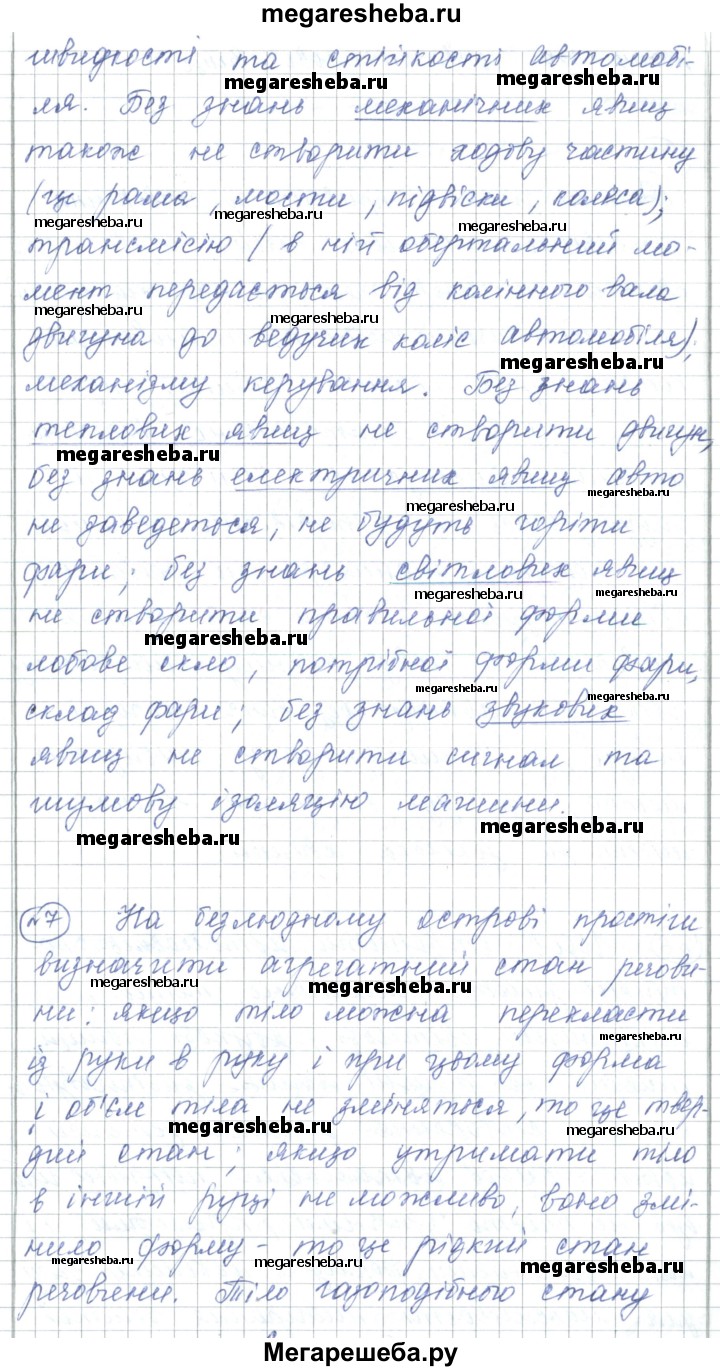 megaresheba.ru
швидкості та стійкості автомобі-
megaresheba.ru megaresheba.ru
ля. Без знань механічних явищ
також не створити ходову частину
(це рама, мости, підвіски, колеса);
megaresheba.ru megaresheba.ru
трансмісію (в ній обертальний мо-
мент передається від колінного вала
megaresheba.ru megaresheba.ru
двигуна до ведучих коліс автомобіля);
megaresheba.ru
механізму керування. Без знань
теплових явищ не створити двигун,
megaresheba.ru megaresheba.ru
без знань електричних явищ авто
megaresheba.ru megaresheba.ru
не заведеться, не будуть горіти
фари; без знань світлових явищ
megaresheba.ru megaresheba.ru
не створити правильної форми
megaresheba.ru
лобове скло, потрібної форми фари,
megaresheba.ru megaresheba.ru
склад фари; без знань звукових
явищ не створити сигнал та
шумову ізоляцію машини.
megaresheba.ru megaresheba.ru
№7 На безлюдному острові простіш
визначити агрегатний стан речови-
megaresheba.ru megaresheba.ru
ни: якщо тіло можна перекласти
megaresheba.ru
із руки в руку і при цьому форма
і об'єм тіла не зміняться, то це твер-
megaresheba.ru megaresheba.ru
дий стан; якщо утримати тіло
в іншій руці не можливо, воно змі-
нило форму - то це рідкий стан
megaresheba.ru megaresheba.ru
речовини. Тіло газоподібного стану
Мегарешеба.ру